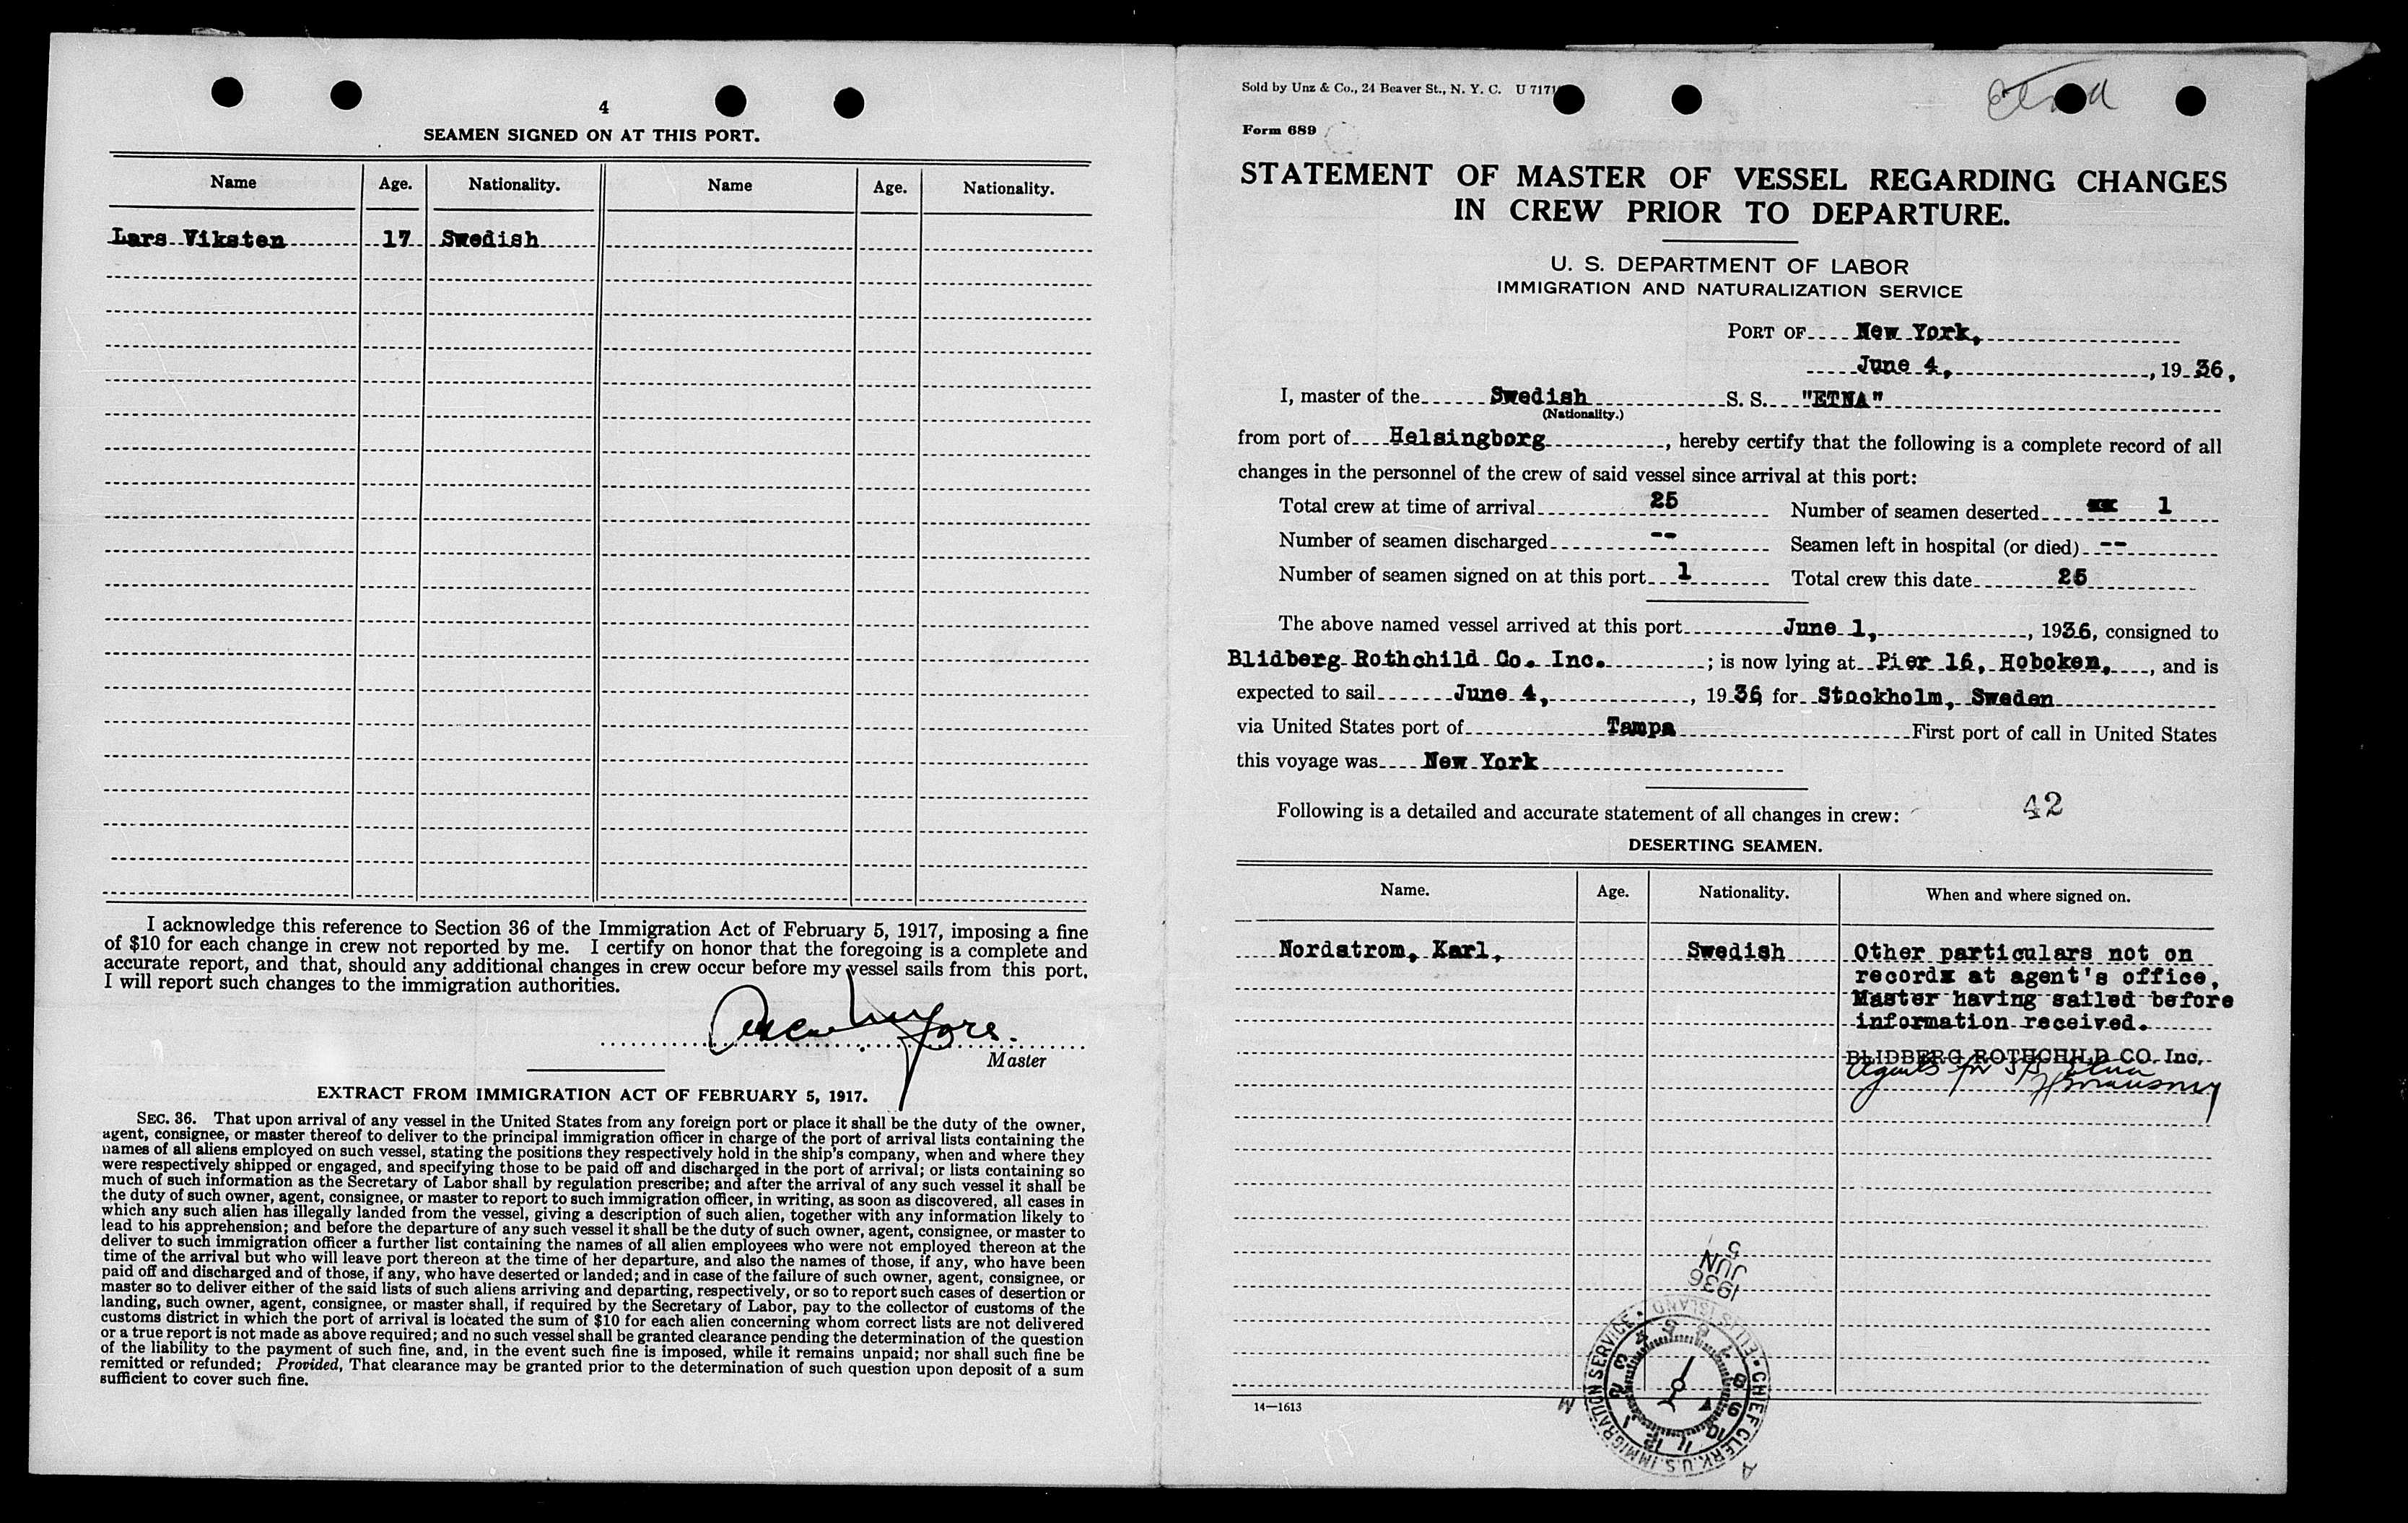 4
SEAMEN SIGNED ON AT THIS PORT.
Name Age. Nationality. Name Age. Nationality.
Lars Viksten 17 Swedish
I acknowledge this reference to Section 36 of the Immigration Act of February 5, 1917, imposing a fine
of $10 for each change in crew not reported by me. I certify on honor that the foregoing is a complete and
accurate report, and that, should any additional changes in crew occur before my vessel sails from this port,
I will report such changes to the immigration authorities.
Master
EXTRACT FROM IMMIGRATION ACT OF FEBRUARY 5, 1917.
SEC. 36. That upon arrival of any vessel in the United States from any foreign port or place it shall be the duty of the owner,
agent, consignee, or master thereof to deliver to the principal immigration officer in charge of the port of arrival lists containing the
names of all aliens employed on such vessel, stating the positions they respectively hold in the ship's company, when and where they
were respectively shipped or engaged, and specifying those to be paid off and discharged in the port of arrival; or lists containing so
much of such information as the Secretary of Labor shall by regulation prescribe; and after the arrival of any such vessel it shall be
the duty of such owner, agent, consignee, or master to report to such immigration officer, in writing, as soon as discovered, all cases in
which any such alien has illegally landed from the vessel, giving a description of such alien, together with any information likely to
lead to his apprehension; and before the departure of any such vessel it shall be the duty of such owner, agent, consignee, or master to
deliver to such immigration officer a further list containing the names of all alien employees who were not employed thereon at the
time of the arrival but who will leave port thereon at the time of her departure, and also the names of those, if any, who have been
paid off and discharged and of those, if any, who have deserted or landed; and in case of the failure of such owner, agent, consignee, or
master so to deliver either of the said lists of such aliens arriving and departing, respectively, or so to report such cases of desertion or
landing, such owner, agent, consignee, or master shall, if required by the Secretary of Labor, pay to the collector of customs of the
customs district in which the port of arrival is located the sum of $10 for each alien concerning whom correct lists are not delivered
or a true report is not made as above required; and no such vessel shall be granted clearance pending the determination of the question
of the liability to the payment of such fine, and, in the event such fine is imposed, while it remains unpaid; nor shall such fine be
remitted or refunded; Provided, That clearance may be granted prior to the determination of such question upon deposit of a sum
sufficient to cover such fine.
Sold by Unz & Co., 24 Beaver St., N. Y. C. U 7171
Etna
Form 689
STATEMENT OF MASTER OF VESSEL REGARDING CHANGES
IN CREW PRIOR TO DEPARTURE.
U. S. DEPARTMENT OF LABOR
IMMIGRATION AND NATURALIZATION SERVICE
PORT OF New York,
June 4, , 19 36,
I, master of the Swedish S. S. "ETNA"
(Nationality.)
from port of Helsingborg , hereby certify that the following is a complete record of all
changes in the personnel of the crew of said vessel since arrival at this port:
Total crew at time of arrival 25 Number of seamen deserted 1
Number of seamen discharged -- Seamen left in hospital (or died) --
Number of seamen signed on at this port 1 Total crew this date 25
The above named vessel arrived at this port June 1, , 1936, consigned to
Blidberg Rothchild Co. Inc. ; is now lying at Pier 16, Hoboken, , and is
expected to sail June 4, , 19 36 for Stockholm, Sweden
via United States port of Tampa First port of call in United States
this voyage was New York
Following is a detailed and accurate statement of all changes in crew: 42
DESERTING SEAMEN.
Name. Age. Nationality. When and where signed on.
Nordstrom, Karl, Swedish Other particulars not on
records at agent's office,
Master having sailed before
information received.
BLIDBERG ROTHCHILD CO. Inc.
Agents for S/S Etna
5
JUN
1936
CHIEF CLERK, U.S. IMMIGRATION SERVICE • ELLIS ISLAND •
1 2 3 4 5 6 7 8 9 10 11 12
M
A
14—1613